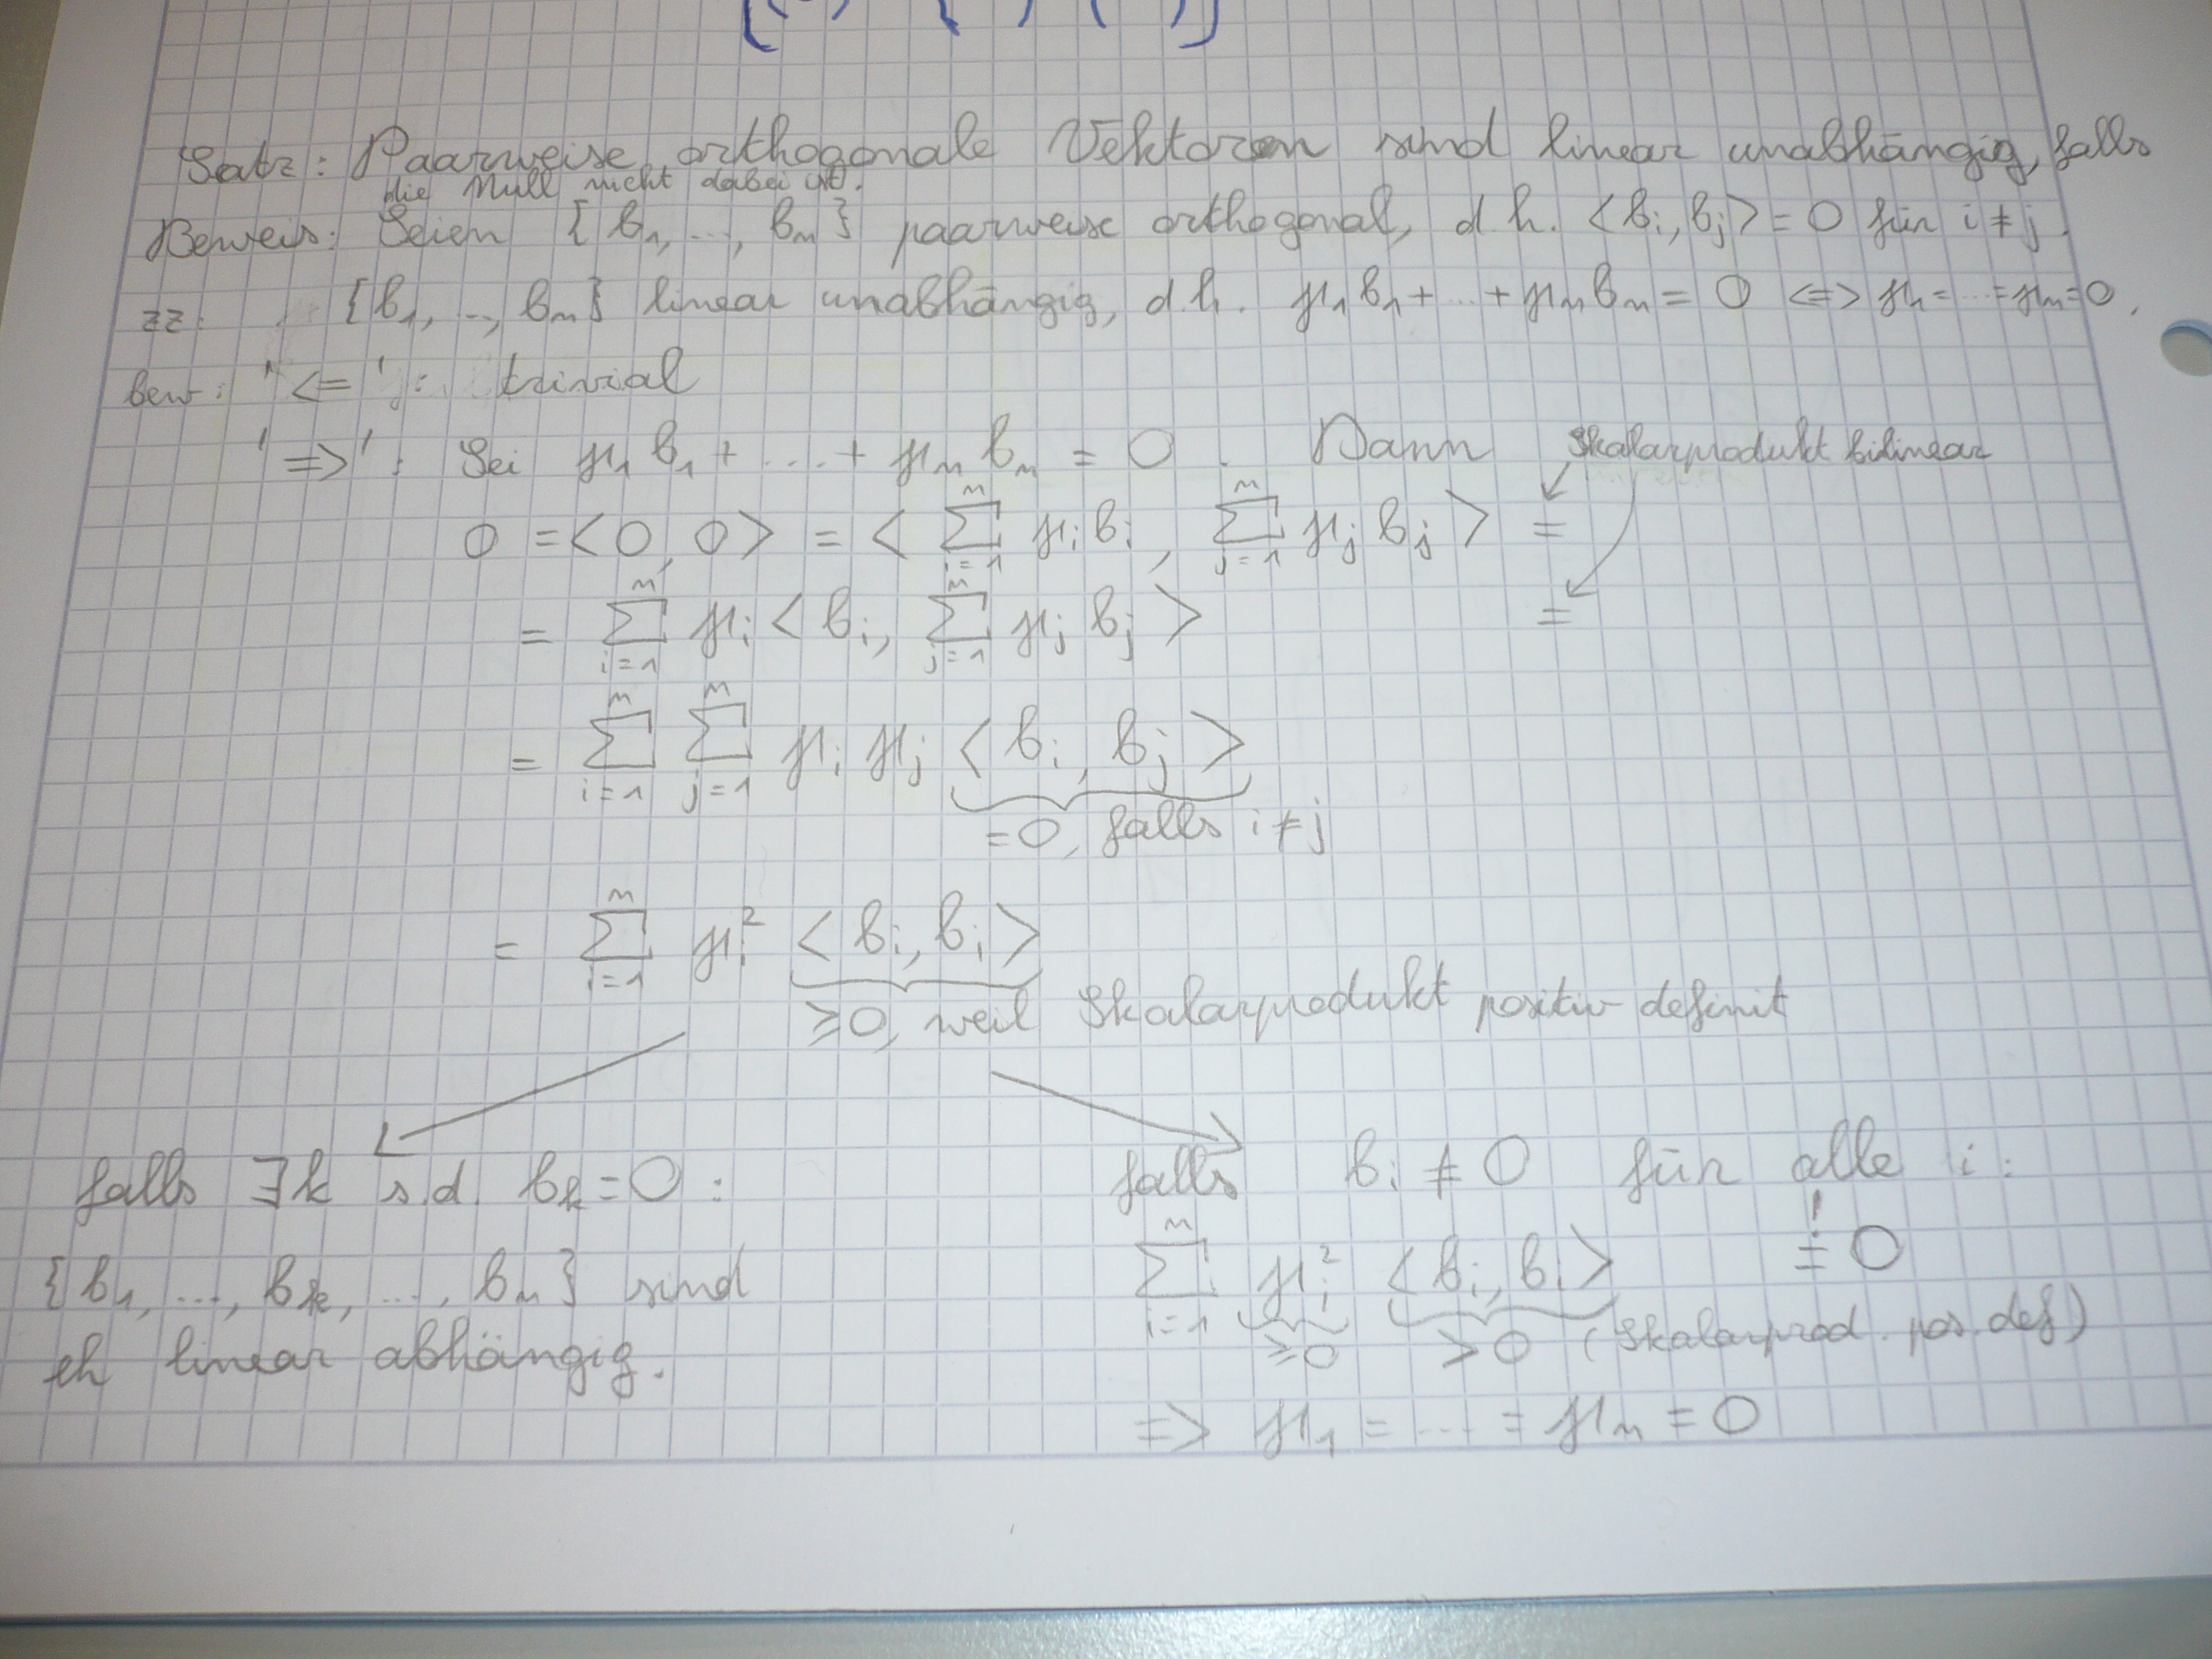 Satz: Paarweise orthogonale Vektoren sind linear unabhängig, falls
die Null nicht dabei ist.
Beweis: Seien {b₁, ..., bₙ} paarweise orthogonal, d.h. <bᵢ, bⱼ> = 0 für i ≠ j.
zz: {b₁, .., bₙ} linear unabhängig, d.h. μ₁b₁ + ... + μₙbₙ = 0 <=> μ₁ = ... = μₙ = 0.
bew: '<=': trivial
'=>': Sei μ₁b₁ + ... + μₙbₙ = 0. Dann
Skalarprodukt bilinear
0 = <0, 0> = < ∑ᵢ₌₁ⁿ μᵢbᵢ, ∑ⱼ₌₁ⁿ μⱼbⱼ > =
= ∑ᵢ₌₁ⁿ μᵢ < bᵢ, ∑ⱼ₌₁ⁿ μⱼbⱼ > =
= ∑ᵢ₌₁ⁿ ∑ⱼ₌₁ⁿ μᵢ μⱼ < bᵢ, bⱼ >
= 0, falls i ≠ j
= ∑ᵢ₌₁ⁿ μᵢ² < bᵢ, bᵢ >
≥ 0, weil Skalarprodukt positiv definit
falls ∃k s.d. bₖ = 0:
{b₁, ..., bₖ, ..., bₙ} sind
eh linear abhängig.
falls bᵢ ≠ 0 für alle i:
∑ᵢ₌₁ⁿ μᵢ² < bᵢ, bᵢ > =! 0
≥ 0 > 0 (Skalarprod. pos. def)
=> μ₁ = ... = μₙ = 0